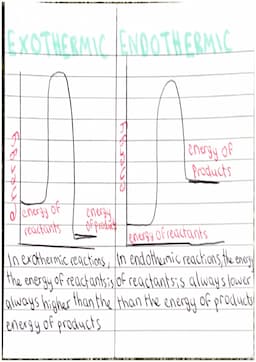 EXOTHERMIC
ENDOTHERMIC
energy of
reactants
energy
of products
energy of
products
energy of reactants
In exothermic reactions,
the energy of reactants is
always higher than the
energy of products
In endothermic reactions, the energy
of reactants is always lower
than the energy of products